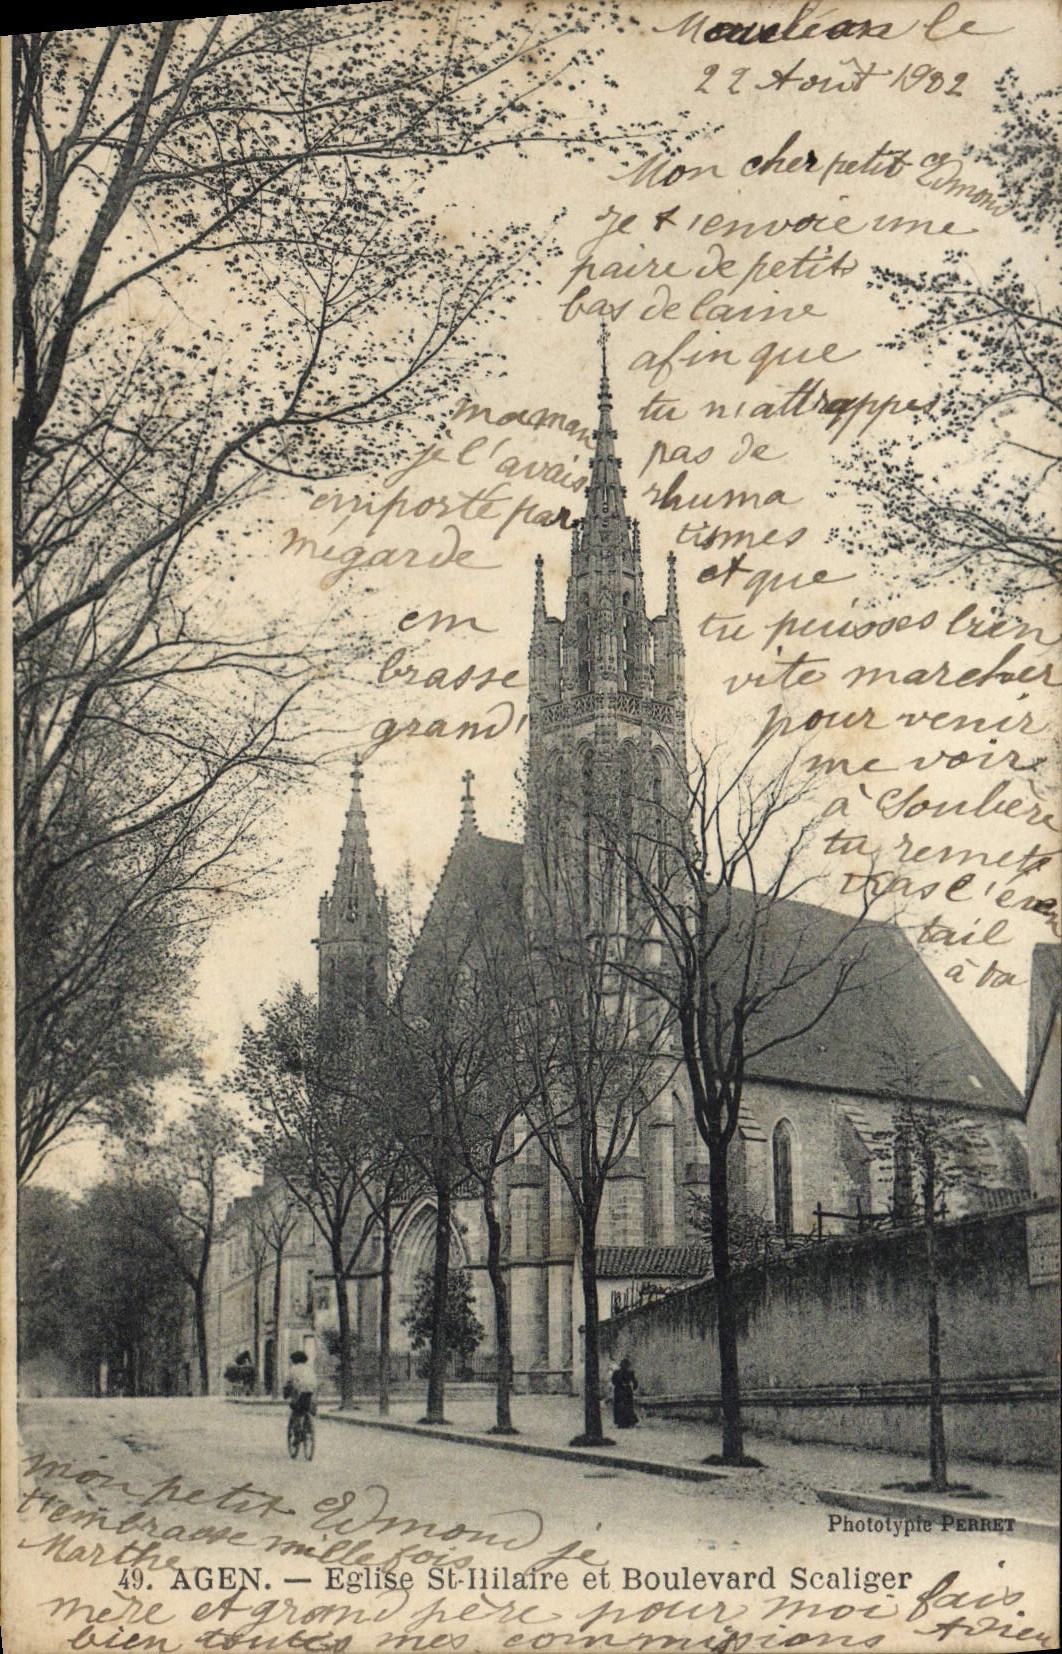 Mauléon le
22 Août 1902
Mon cher petit Edmond
je t'envoie une
paire de petits
bas de laine
afin que
tu n'attrappes
pas de
rhuma
tismes
et que
tu puisses bien
vite marcher
pour venir
me voir
à Soubère
tu remet
tras l'éven
tail
à ta
maman
je l'avais
emporté par
mégarde
em
brasse
grand'
mère et grand père pour moi fais
bien toutes mes commissions Adieu
mon petit Edmond je
t'embrasse mille fois
Marthe
Phototypie PERRET
49. AGEN. — Eglise St-Hilaire et Boulevard Scaliger